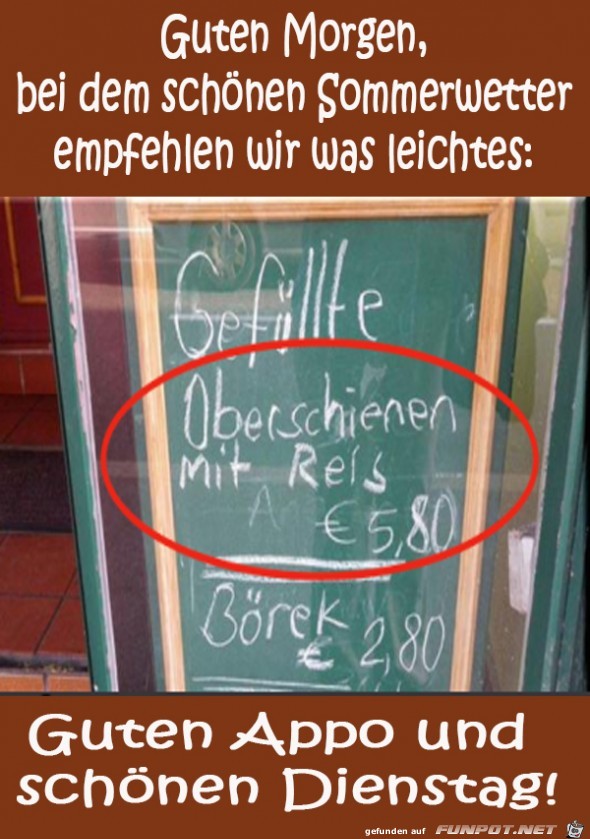 Guten Morgen,
bei dem schönen Sommerwetter
empfehlen wir was leichtes:
Gefüllte
Oberschienen
mit Reis
€ 5,80
Börek
€ 2,80
Guten Appo und
schönen Dienstag!
gefunden auf FUNPOT.NET